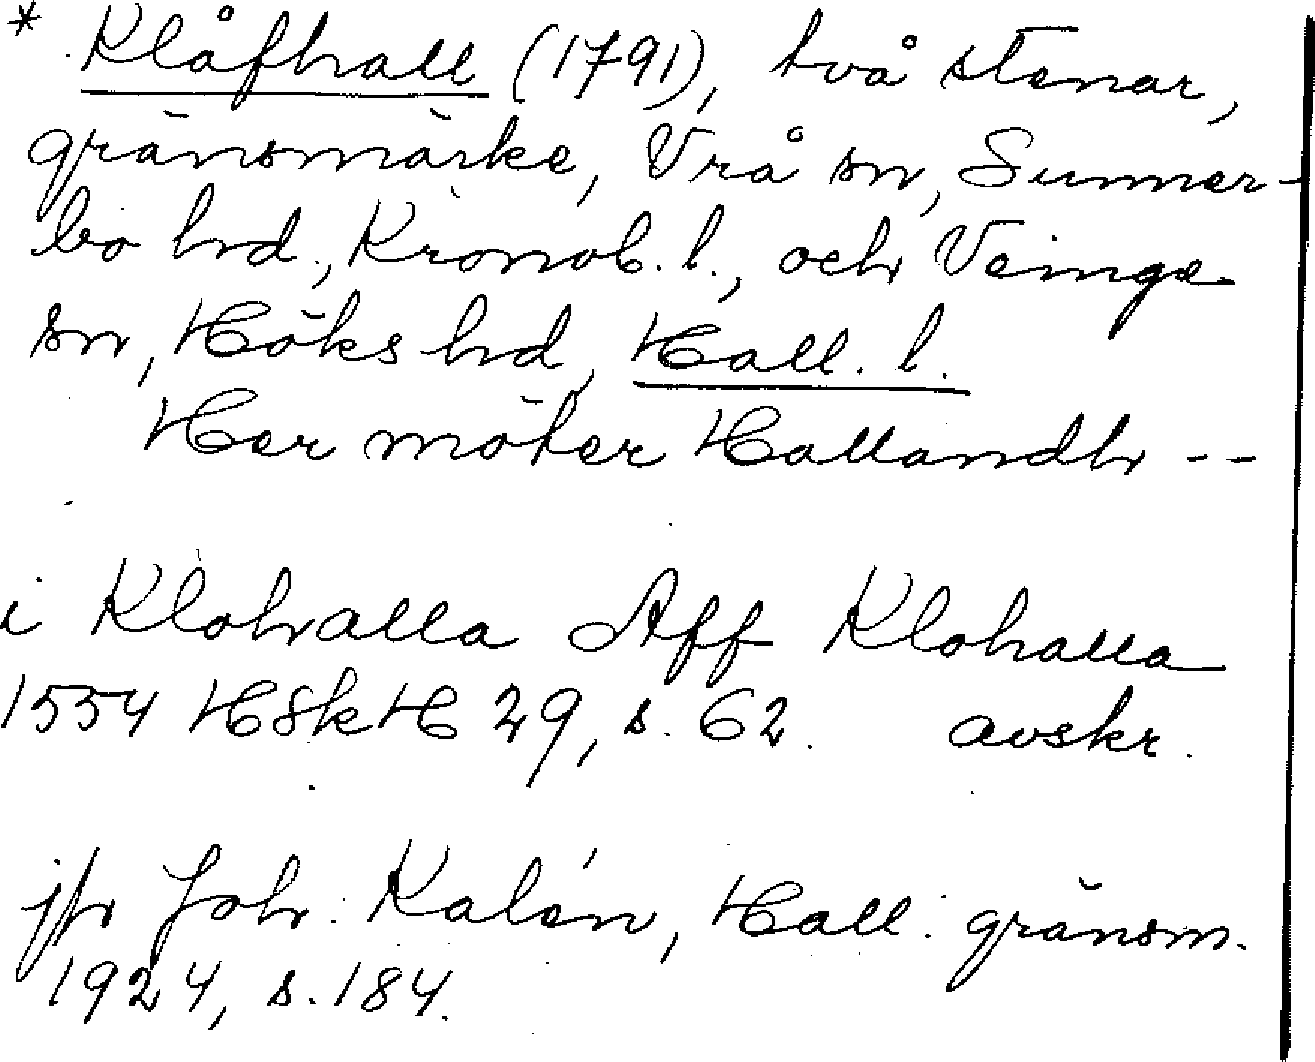 * Klåfhall (1791), två stenar,
gränsmärke, Vrå sn, Sunner-
bo hd., Kronob. l., och Veinge
sn, Höks hd, Hall. l.
Her möter Hallandh --
i Klohalla Aff Klohalla
1554 HSkH 29, s. 62. avskr.
jfr Joh. Kalén, Hall. gränsm.
1924, s. 184.